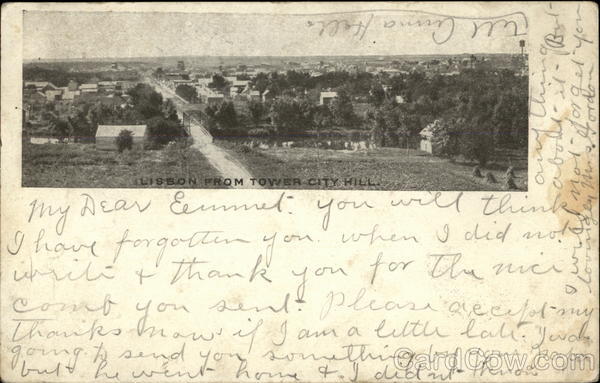 Tell Anna Hello
LISBON FROM TOWER CITY HILL.
My Dear Emmet. you will think
I have forgotten you. when I did not
write & thank you for the nice
comb you sent. Please accept my
thanks now if I am a little late. I was
going to send you something by
but he went home & I didn't know
anything
about it. But
I will not forget you
Lovingly Mrs. Gordon
CardCow.com